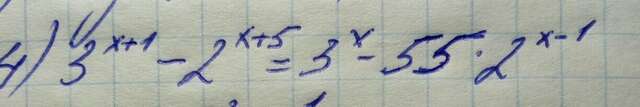 4) 3^{x+1} - 2^{x+5} = 3^x - 55 · 2^{x-1}